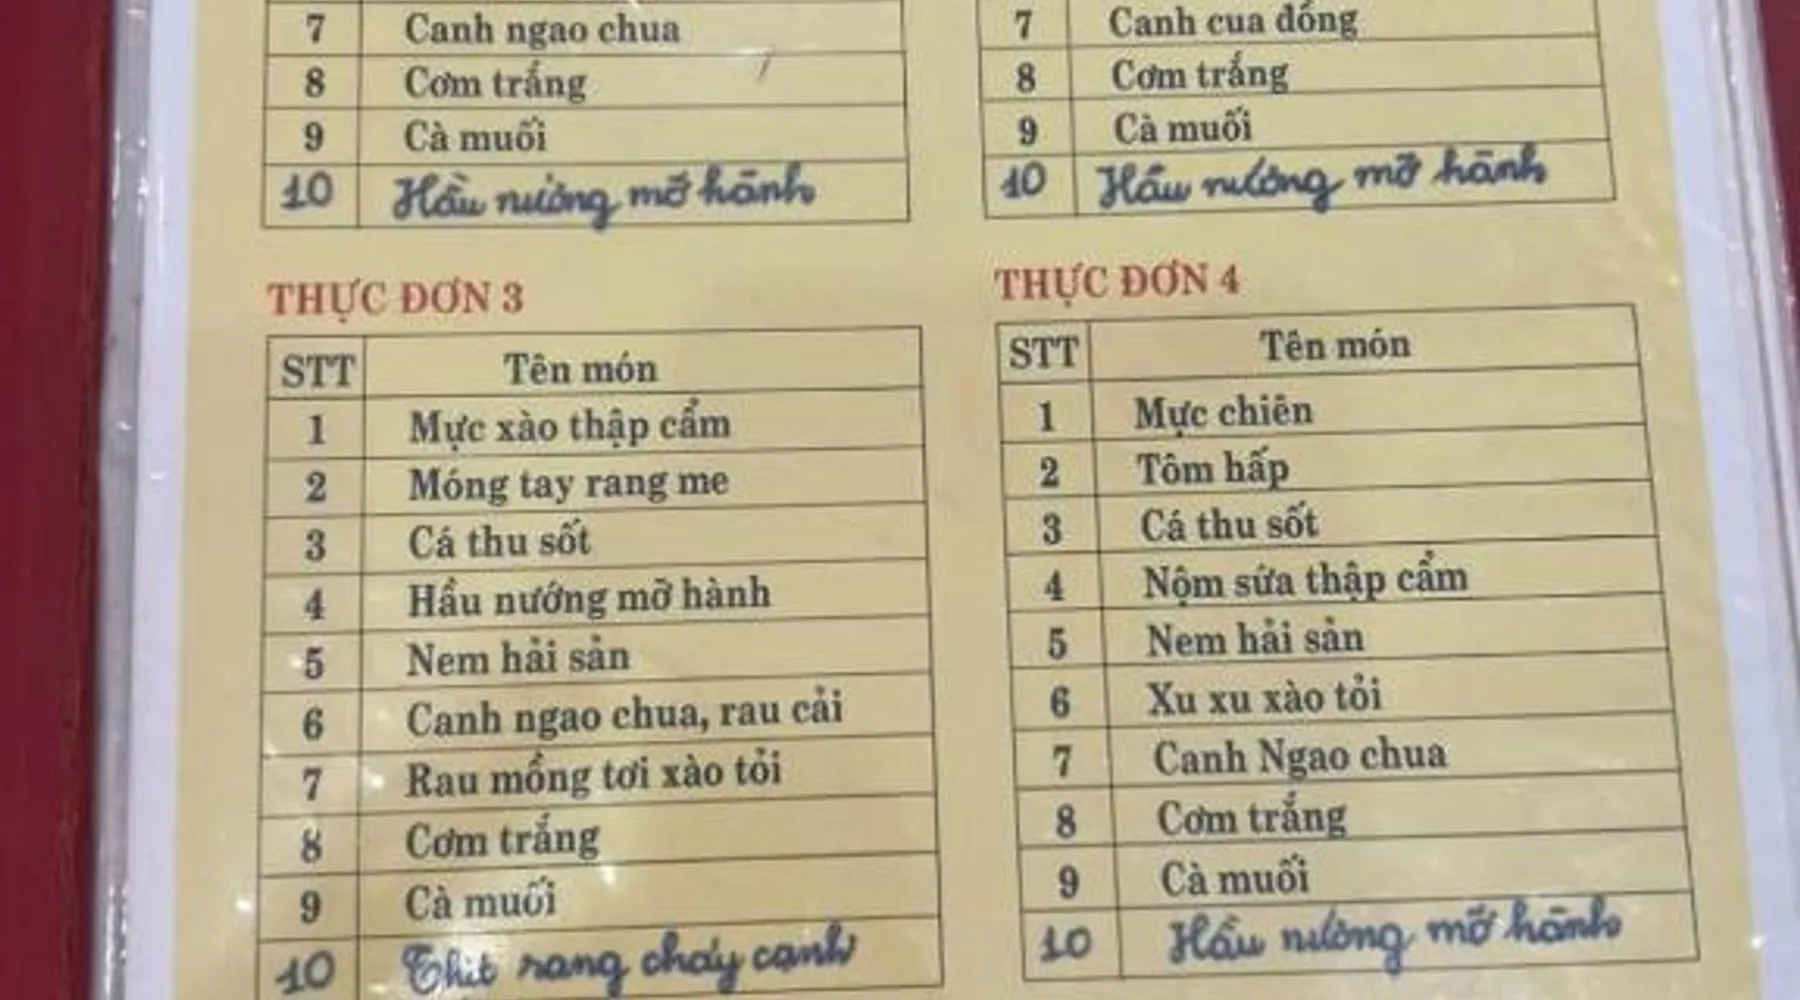 7 Canh ngao chua
8 Cơm trắng
9 Cà muối
10 Hầu nướng mỡ hành
7 Canh cua đồng
8 Cơm trắng
9 Cà muối
10 Hầu nướng mỡ hành
THỰC ĐƠN 3
STT Tên món
1 Mực xào thập cẩm
2 Móng tay rang me
3 Cá thu sốt
4 Hầu nướng mỡ hành
5 Nem hải sản
6 Canh ngao chua, rau cải
7 Rau mồng tơi xào tỏi
8 Cơm trắng
9 Cà muối
10 Thịt rang cháy cạnh
THỰC ĐƠN 4
STT Tên món
1 Mực chiên
2 Tôm hấp
3 Cá thu sốt
4 Nộm sứa thập cẩm
5 Nem hải sản
6 Xu xu xào tỏi
7 Canh Ngao chua
8 Cơm trắng
9 Cà muối
10 Hầu nướng mỡ hành